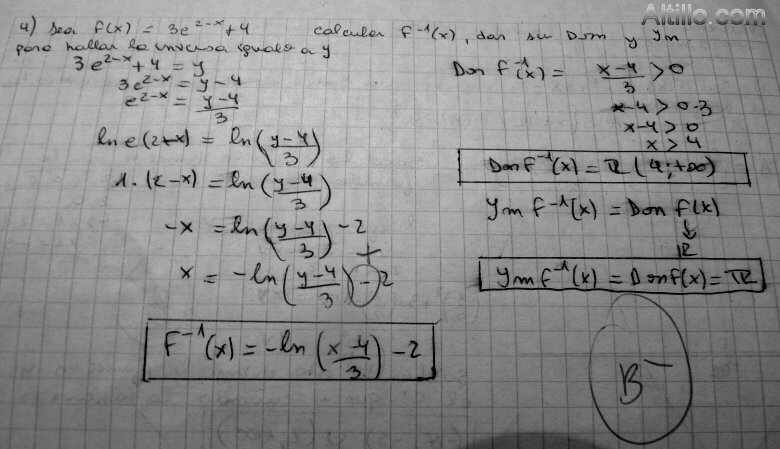 Altillo.com
4) Sea f(x) = 3e^{2-x}+4 calcular f^{-1}(x), dar su Dom y Ym
para hallar la inversa igualo a y
3e^{2-x}+4 = y
3e^{2-x} = y-4
e^{2-x} = \frac{y-4}{3}
ln e (2-x) = ln(\frac{y-4}{3})
1.(2-x) = ln(\frac{y-4}{3})
-x = ln(\frac{y-4}{3}) -2
+
x = -ln(\frac{y-4}{3}) - 2
F^{-1}(x) = -ln(\frac{x-4}{3}) - 2
Dom f^{-1}(x) = \frac{x-4}{3} > 0
x-4 > 0.3
x-4 > 0
x > 4
Dom f^{-1}(x) = R (4;+∞)
Ym f^{-1}(x) = Dom f(x)
↓
R
Ym f^{-1}(x) = Dom f(x) = R
B-